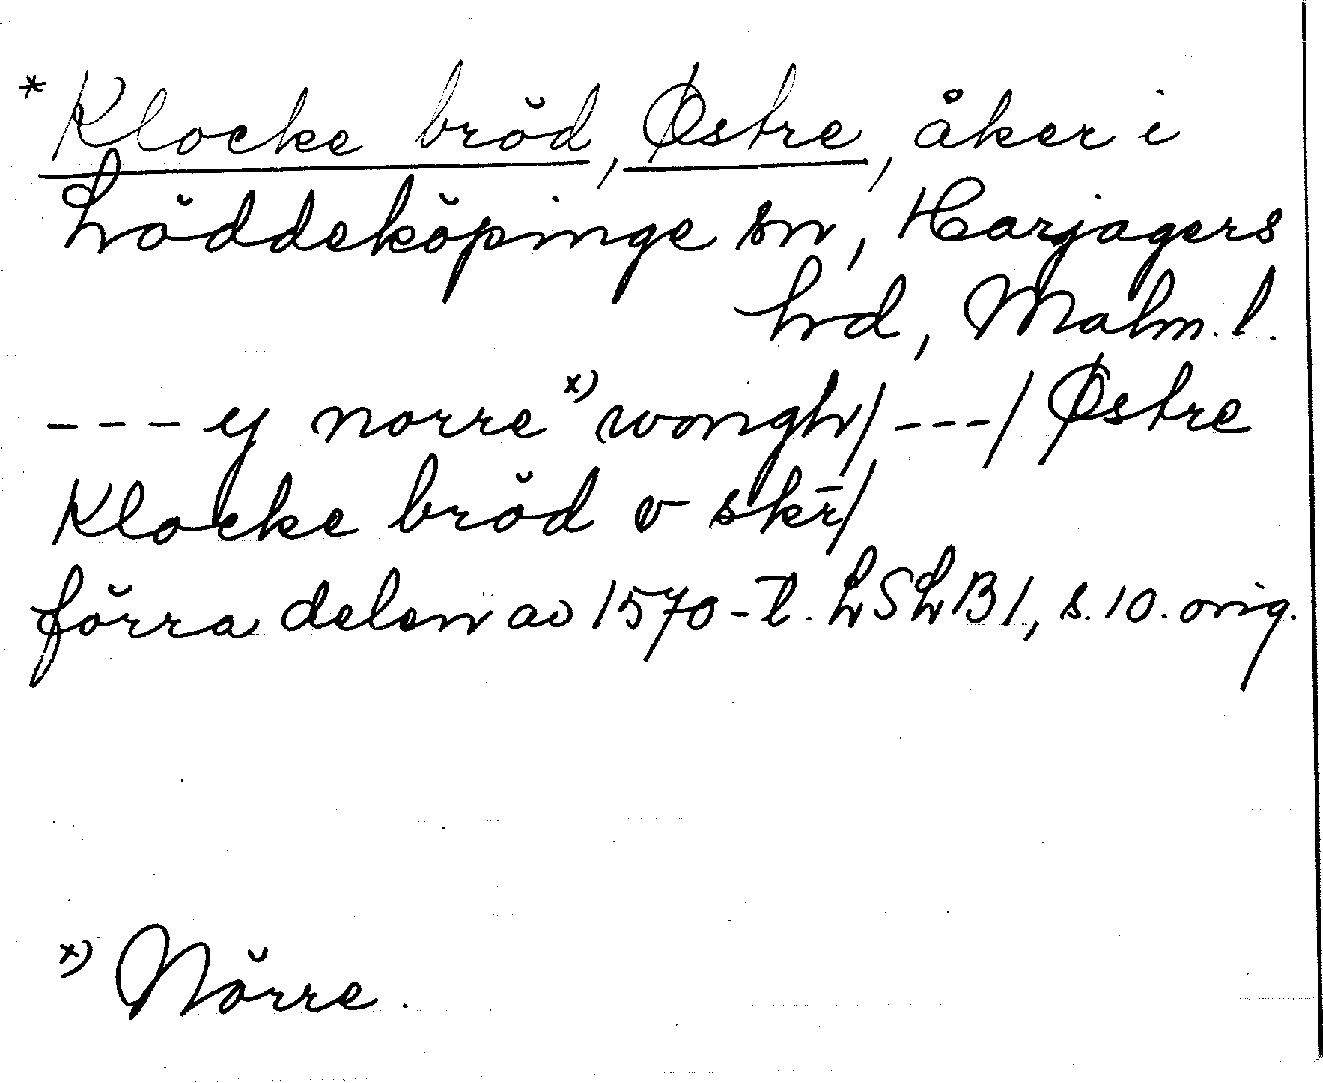 *Klocke bröd, Østre, åker i
Löddeköpinge sn, Harjagers
hd, Malm. l.
---y norre x) wongh/---/Østre
Klocke bröd v skr̄/
förra delen av 1570-t. LSLB1, s.10. orig.
x) Nörre.